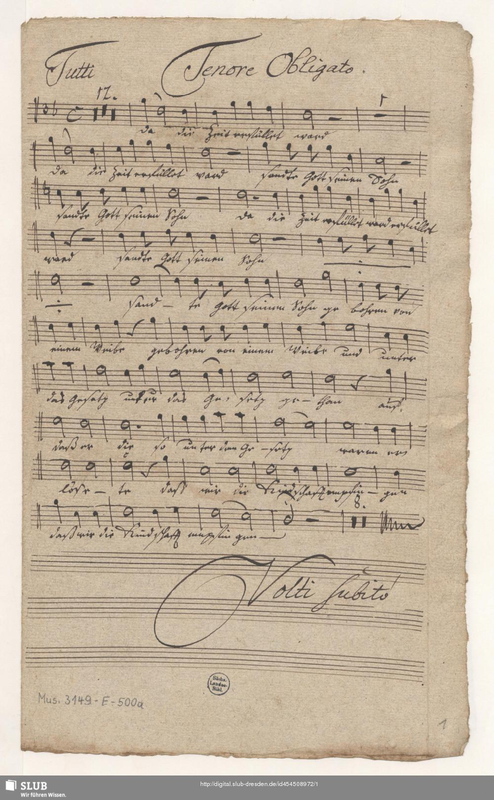 Tutti Tenore Obligato.
17.
1
da die Zeit erfüllet ward
da die Zeit erfüllet ward sandte Gott seinen Sohn
sandte Gott seinen Sohn da die Zeit erfüllet ward erfüllet
ward sandte Gott seinen Sohn
sand - te Gott seinen Sohn ge bohren von
einem Weibe gebohren von einem Weibe und unter
das Gesetz unter das Ge- setz ge- than auf
daß er die so unter dem Ge- setz waren er
löse - te daß wir die Kindschafft empfin - gen
8.
daß wir die Kindschafft empfingen
Volti Subito
Sächs.
Landes-
Bibl.
Mus. 3149-E-500a
1
SLUB
Wir führen Wissen.
http://digital.slub-dresden.de/id454598972/1